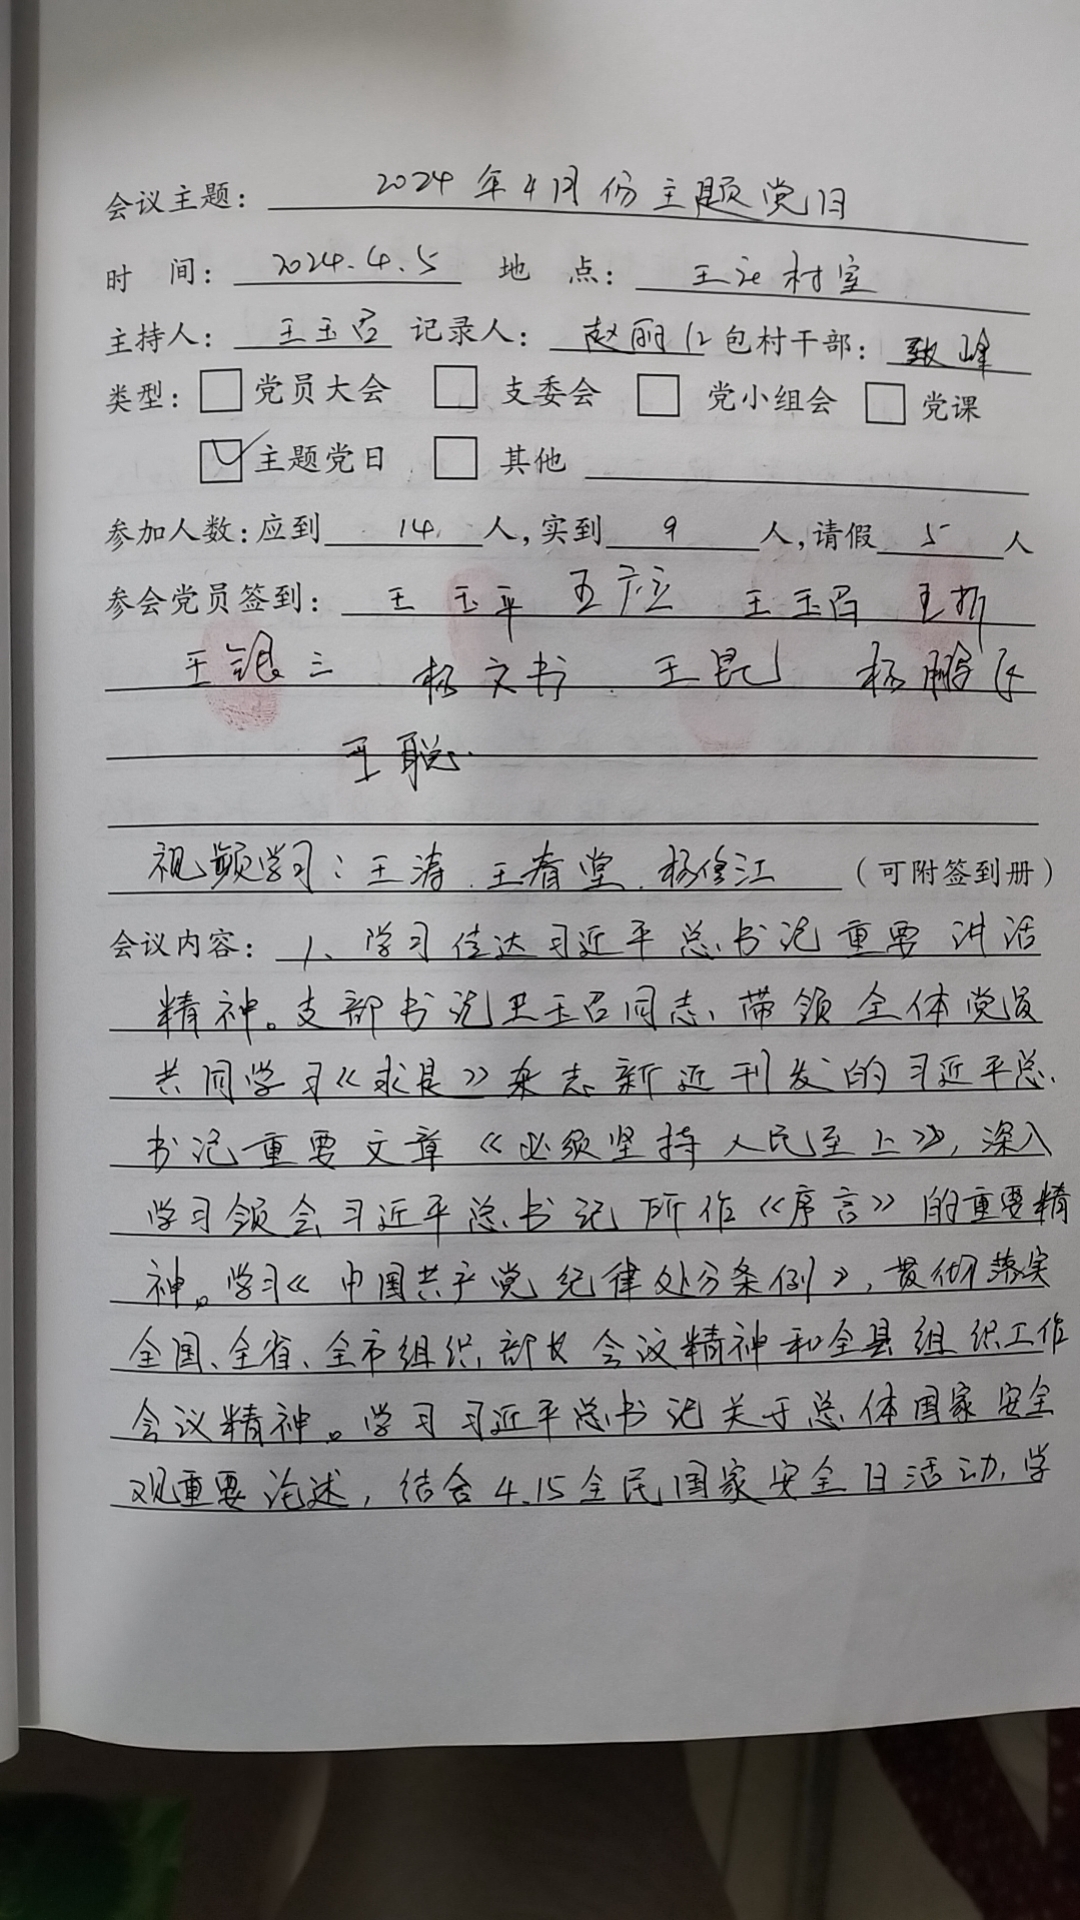 会议主题： 2024年4月份主题党日
时 间： 2024.4.5 地 点： 王 村室
主持人： 王玉召 记录人： 赵丽红 包村干部： 峰
类型： □ 党员大会 □ 支委会 □ 党小组会 □ 党课
☑ 主题党日 □ 其他
参加人数：应到 14 人，实到 9 人，请假 5 人
参会党员签到： 王玉平 王广立 王玉召 王
王银三 杨文书 王昆 杨鹏飞
王聪
视频学习：王涛、王春堂、杨 江 （可附签到册）
会议内容： 1、学习传达习近平总书记重要讲话
精神。支部书记王玉召同志，带领全体党员
共同学习《求是》杂志新近刊发的习近平总
书记重要文章《必须坚持人民至上》，深入
学习领会习近平总书记所作《序言》的重要精
神。学习《中国共产党纪律处分条例》，贯彻落实
全国、全省、全市组织部长会议精神和全县组织工作
会议精神。学习习近平总书记关于总体国家安全
观重要论述，结合4.15全民国家安全日活动，学